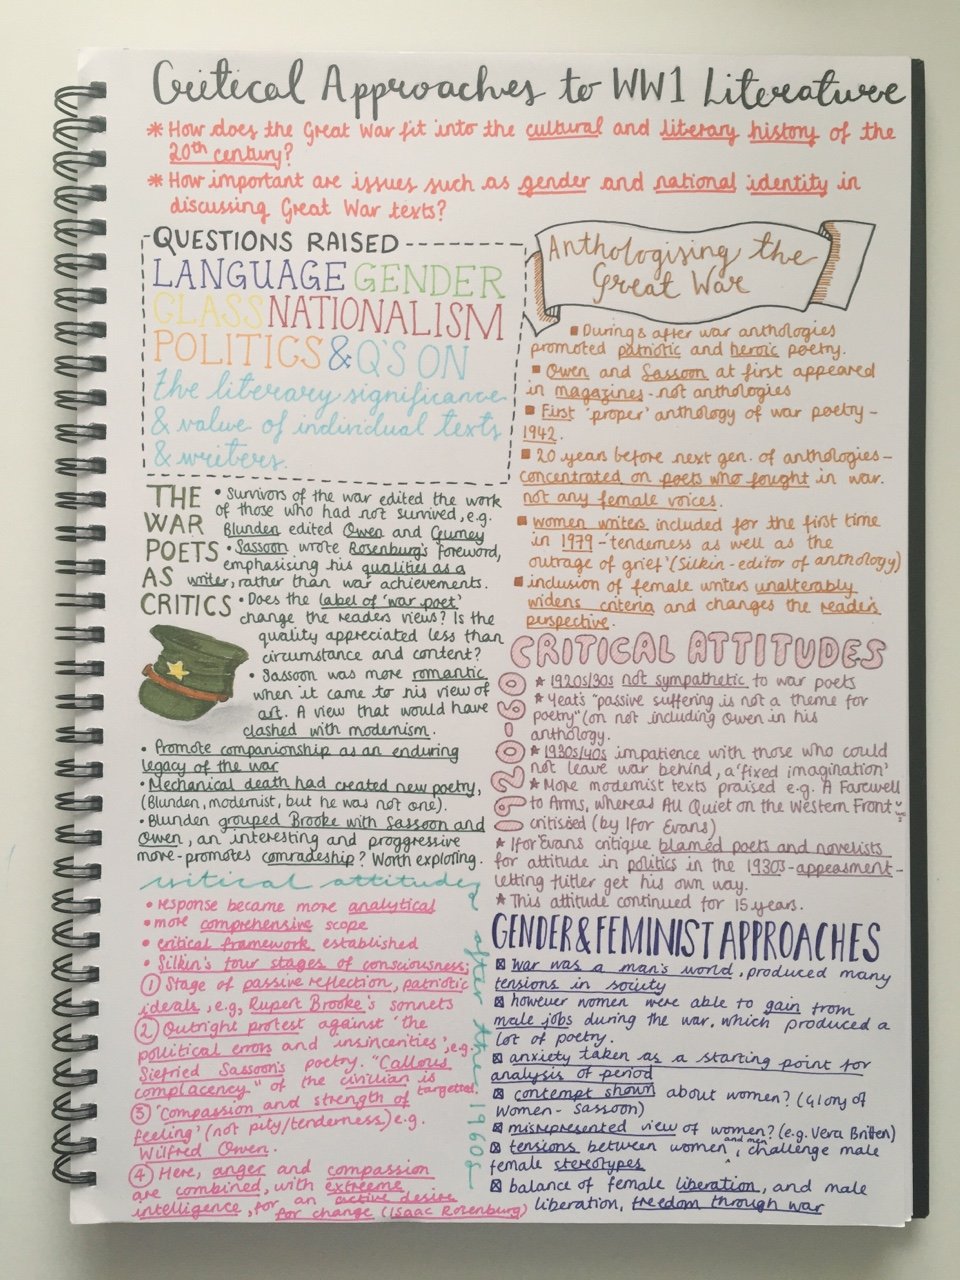 Critical Approaches to WW1 Literature
* How does the Great War fit into the cultural and literary history of the
20th century?
* How important are issues such as gender and national identity in
discussing Great War texts?
QUESTIONS RAISED
LANGUAGE GENDER
CLASS NATIONALISM
POLITICS & Q'S ON
the literary significance
& value of individual texts
& writers.
THE WAR POETS AS CRITICS
• Survivors of the war edited the work
of those who had not survived, e.g.
Blunden edited Owen and Gurney
• Sassoon wrote Rosenburg's foreword,
emphasising his qualities as a
writer, rather than war achievements.
• Does the label of 'war poet'
change the readers views? Is the
quality appreciated less than
circumstance and content?
• Sassoon was more romantic
when it came to his view of
art. A view that would have
clashed with modernism.
• Promote companionship as an enduring
legacy of the war
• Mechanical death had created new poetry,
(Blunden, modernist, but he was not one).
• Blunden grouped Brooke with Sassoon and
Owen, an interesting and proggressive
more-promotes comradeship? Worth exploring.
critical attitudes after the 1960s
• response became more analytical
• more comprehensive scope
• critical framework established
• Silkin's four stages of consciousness;
① Stage of passive reflection, patriotic
ideals, e.g, Rupert Brooke's sonnets
② Outright protest against 'the
political errors and insincerities', e.g.
Siefried Sassoon's poetry. "Callous
complacency" of the civilian is
targetted.
③ 'Compassion and strength of
feeling' (not pity/tenderness) e.g.
Wilfred Owen.
④ Here, anger and compassion
are combined, with extreeme
intelligence, for an 'active desire
for change (Isaac Rosenburg)
Anthologising the
Great War
▪ During & after war anthologies
promoted patriotic and heroic poetry.
▪ Owen and Sassoon at first appeared
in magazines - not anthologies
▪ First 'proper' anthology of war poetry -
1942.
▪ 20 years before next gen. of anthologies -
concentrated on poets who fought in war.
not any female voices.
▪ women writers included for the first time
in 1979 - 'tenderness as well as the
outrage of grief' (Silkin - editor of anthology)
▪ inclusion of female writers unalterably
widens criteria and changes the reader's
perspective.
CRITICAL ATTITUDES
1920-60
★ 1920s/30s not sympathetic to war poets
★ Yeats "passive suffering is not a theme for
poetry" (on not including Owen in his
anthology.
★ 1930s/40s impatience with those who could
not leave war behind, a 'fixed imagination'
★ More modernist texts praised e.g. A Farewell
to Arms, whereas All Quiet on the Western Front
criticised (by Ifor Evans)
★ Ifor Evans critique blamed poets and novelists
for attitude in politics in the 1930s - appeasment -
letting Hitler get his own way.
★ This attitude continued for 15 years.
GENDER & FEMINIST APPROACHES
☒ war was a man's world, produced many
tensions in society
☒ however women were able to gain from
male jobs during the war, which produced a
lot of poetry.
☒ anxiety taken as a starting point for
analysis of period
☒ contempt shown about women? (Glory of
Women - Sassoon)
☒ misrepresented view of women? (e.g. Vera Britten)
☒ tensions between women and men, challenge male
female stereotypes
☒ balance of female liberation, and male
liberation, freedom through war